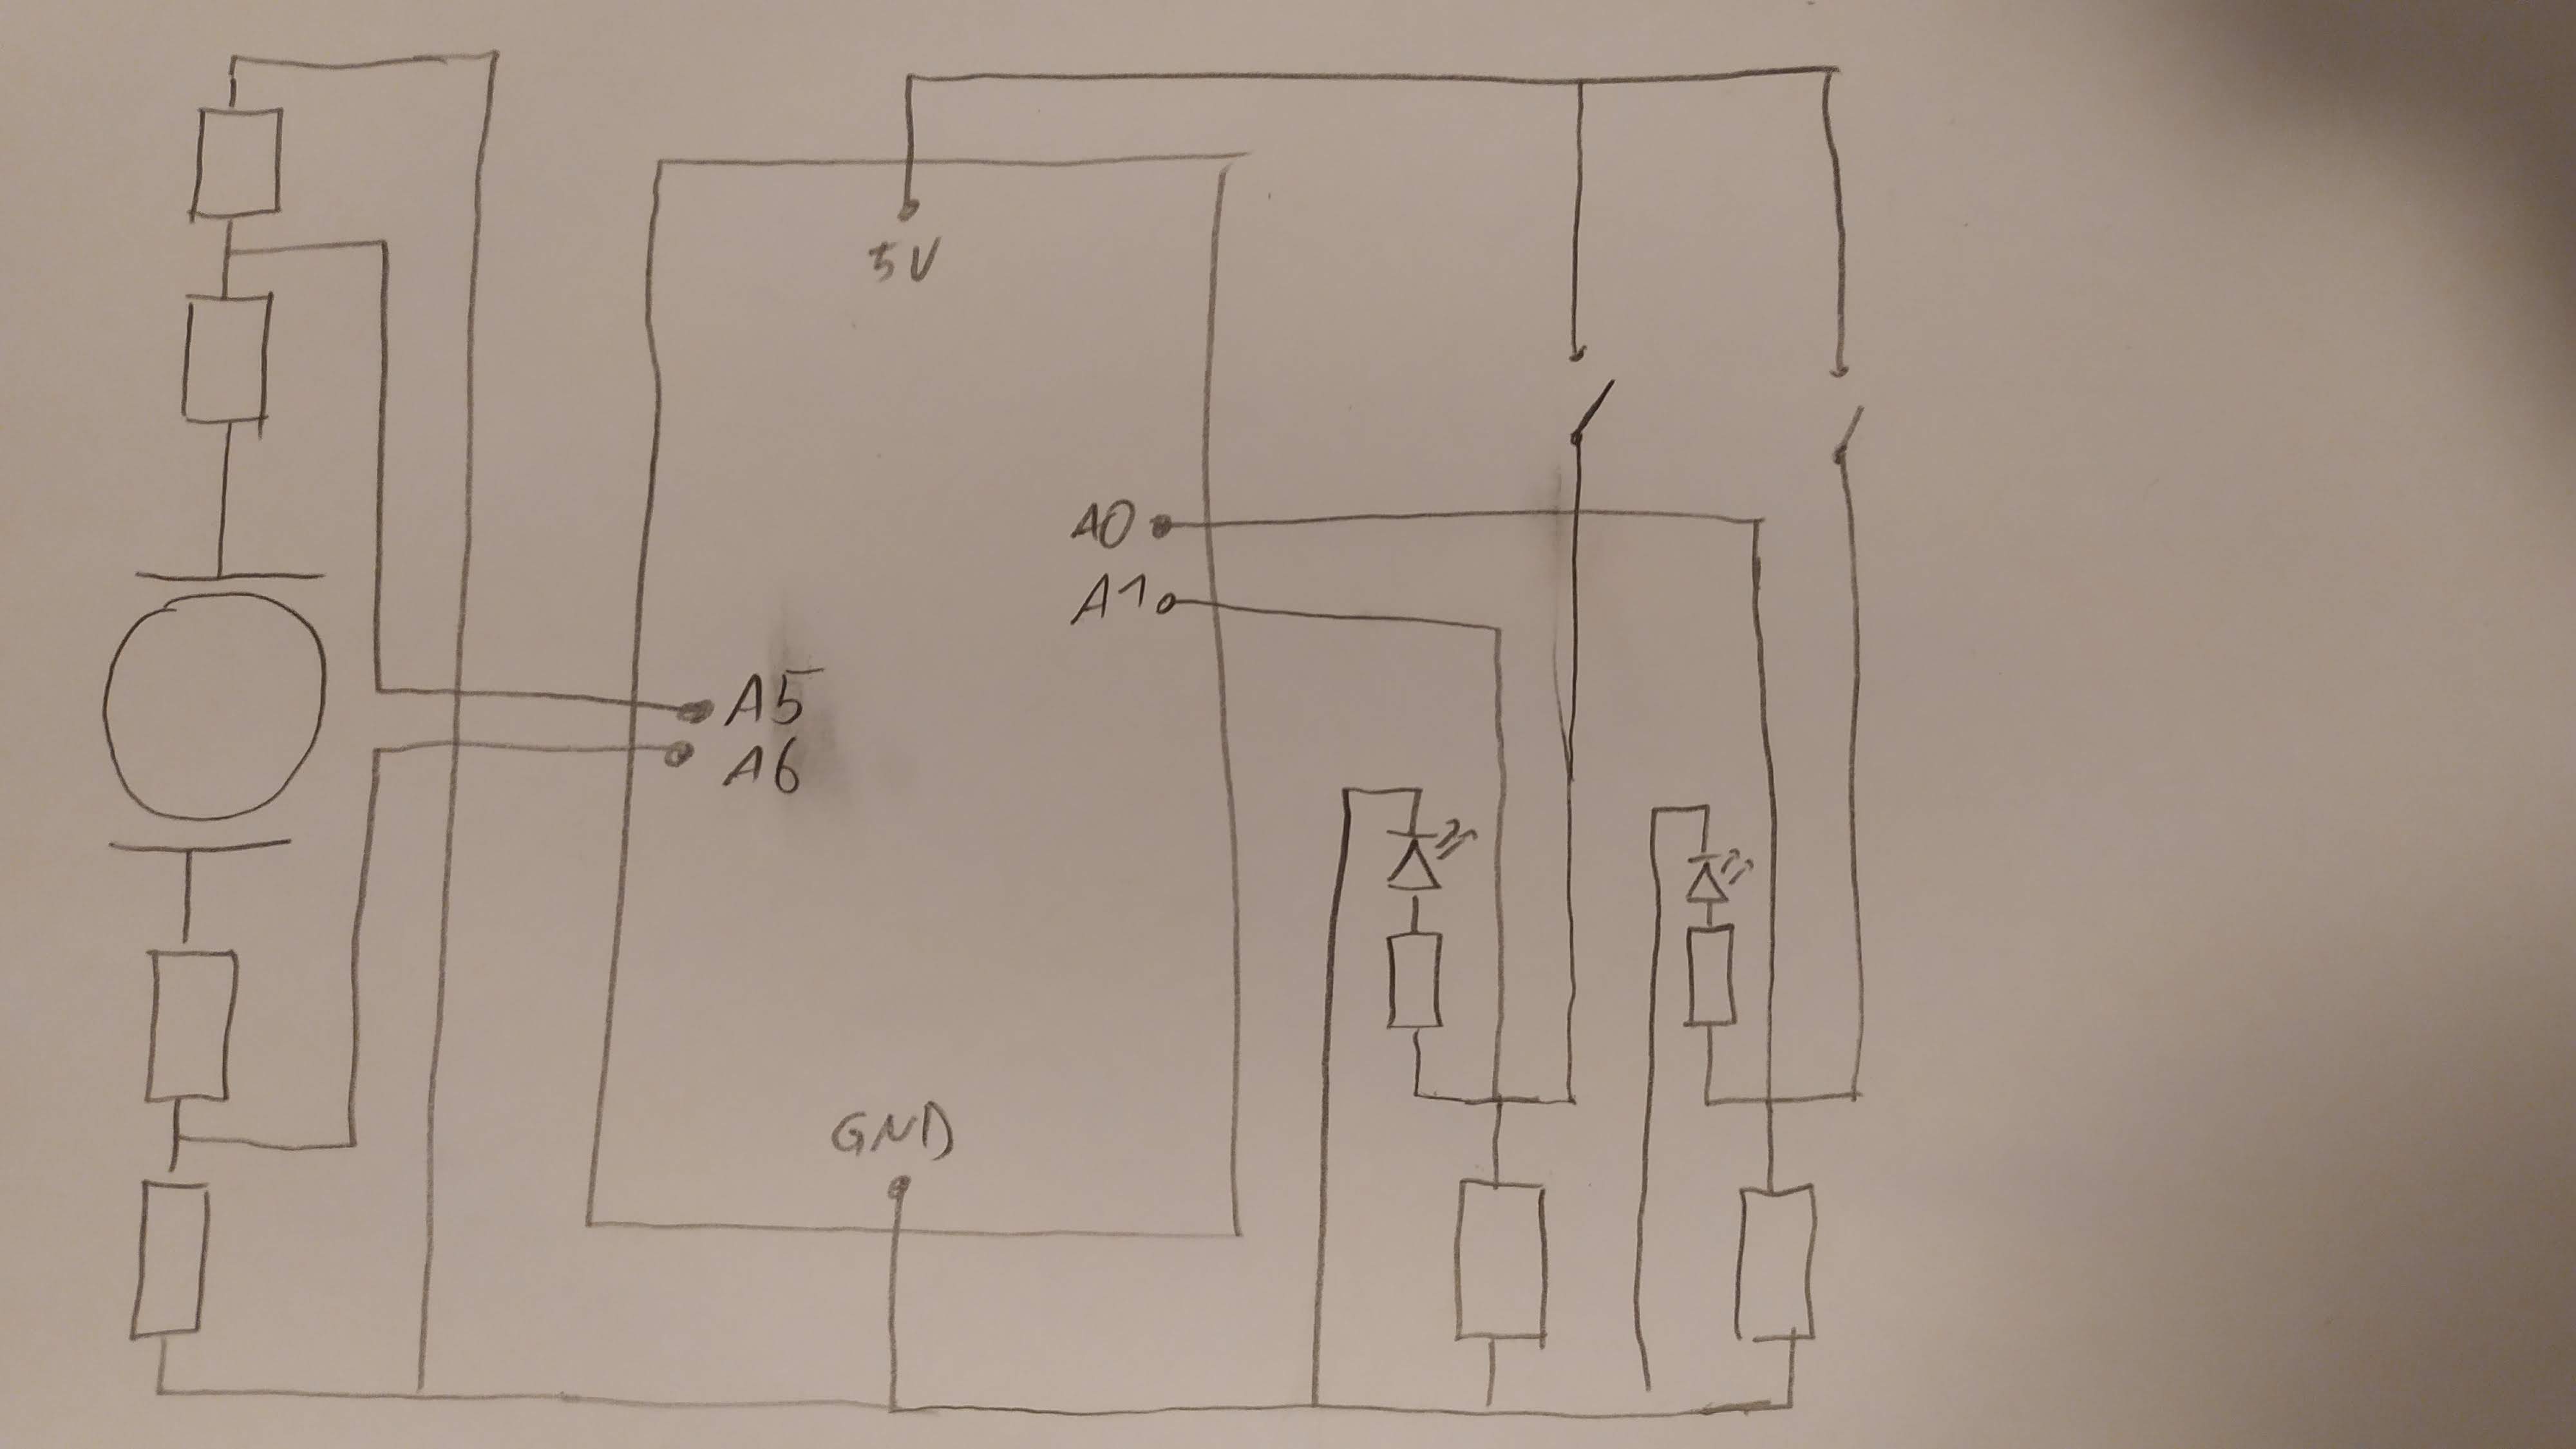 5V
A0
A1
A5
A6
GND